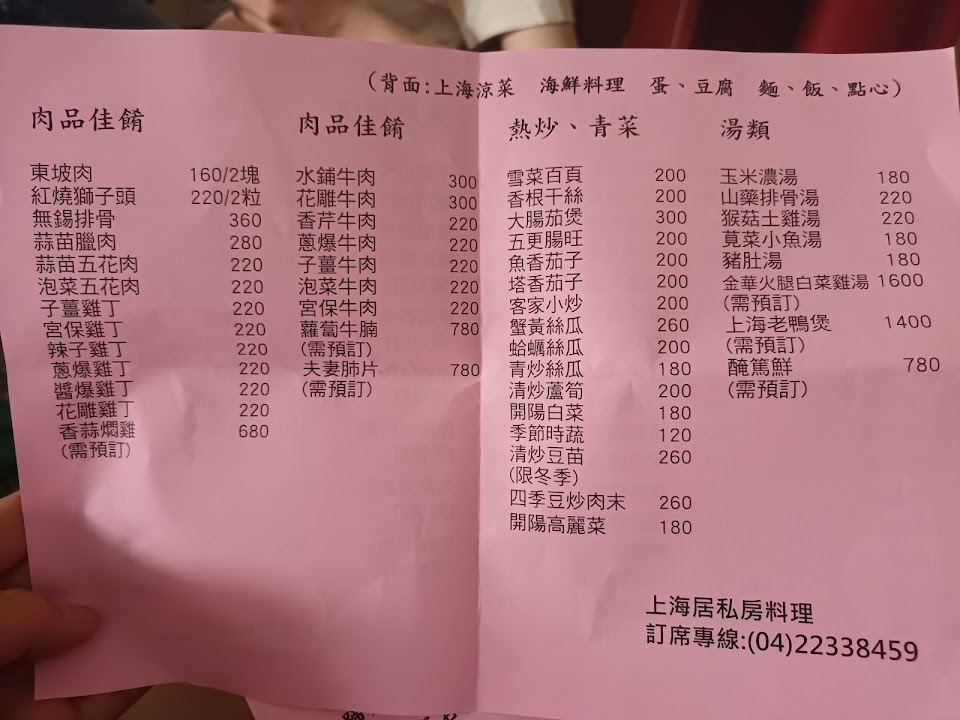 (背面:上海涼菜 海鮮料理 蛋、豆腐 麵、飯、點心)
肉品佳餚
東坡肉 160/2塊
紅燒獅子頭 220/2粒
無錫排骨 360
蒜苗臘肉 280
蒜苗五花肉 220
泡菜五花肉 220
子薑雞丁 220
宮保雞丁 220
辣子雞丁 220
蔥爆雞丁 220
醬爆雞丁 220
花雕雞丁 220
香蒜燜雞 680
(需預訂)
肉品佳餚
水鋪牛肉 300
花雕牛肉 300
香芹牛肉 220
蔥爆牛肉 220
子薑牛肉 220
泡菜牛肉 220
宮保牛肉 220
蘿蔔牛腩 780
(需預訂)
夫妻肺片 780
(需預訂)
熱炒、青菜
雪菜百頁 200
香根干絲 200
大腸茄煲 300
五更腸旺 200
魚香茄子 200
塔香茄子 200
客家小炒 200
蟹黃絲瓜 260
蛤蠣絲瓜 200
青炒絲瓜 180
清炒蘆筍 200
開陽白菜 180
季節時蔬 120
清炒豆苗 260
(限冬季)
四季豆炒肉末 260
開陽高麗菜 180
湯類
玉米濃湯 180
山藥排骨湯 220
猴菇土雞湯 220
莧菜小魚湯 180
豬肚湯 180
金華火腿白菜雞湯 1600
(需預訂)
上海老鴨煲 1400
(需預訂)
醃篤鮮 780
(需預訂)
上海居私房料理
訂席專線:(04)22338459